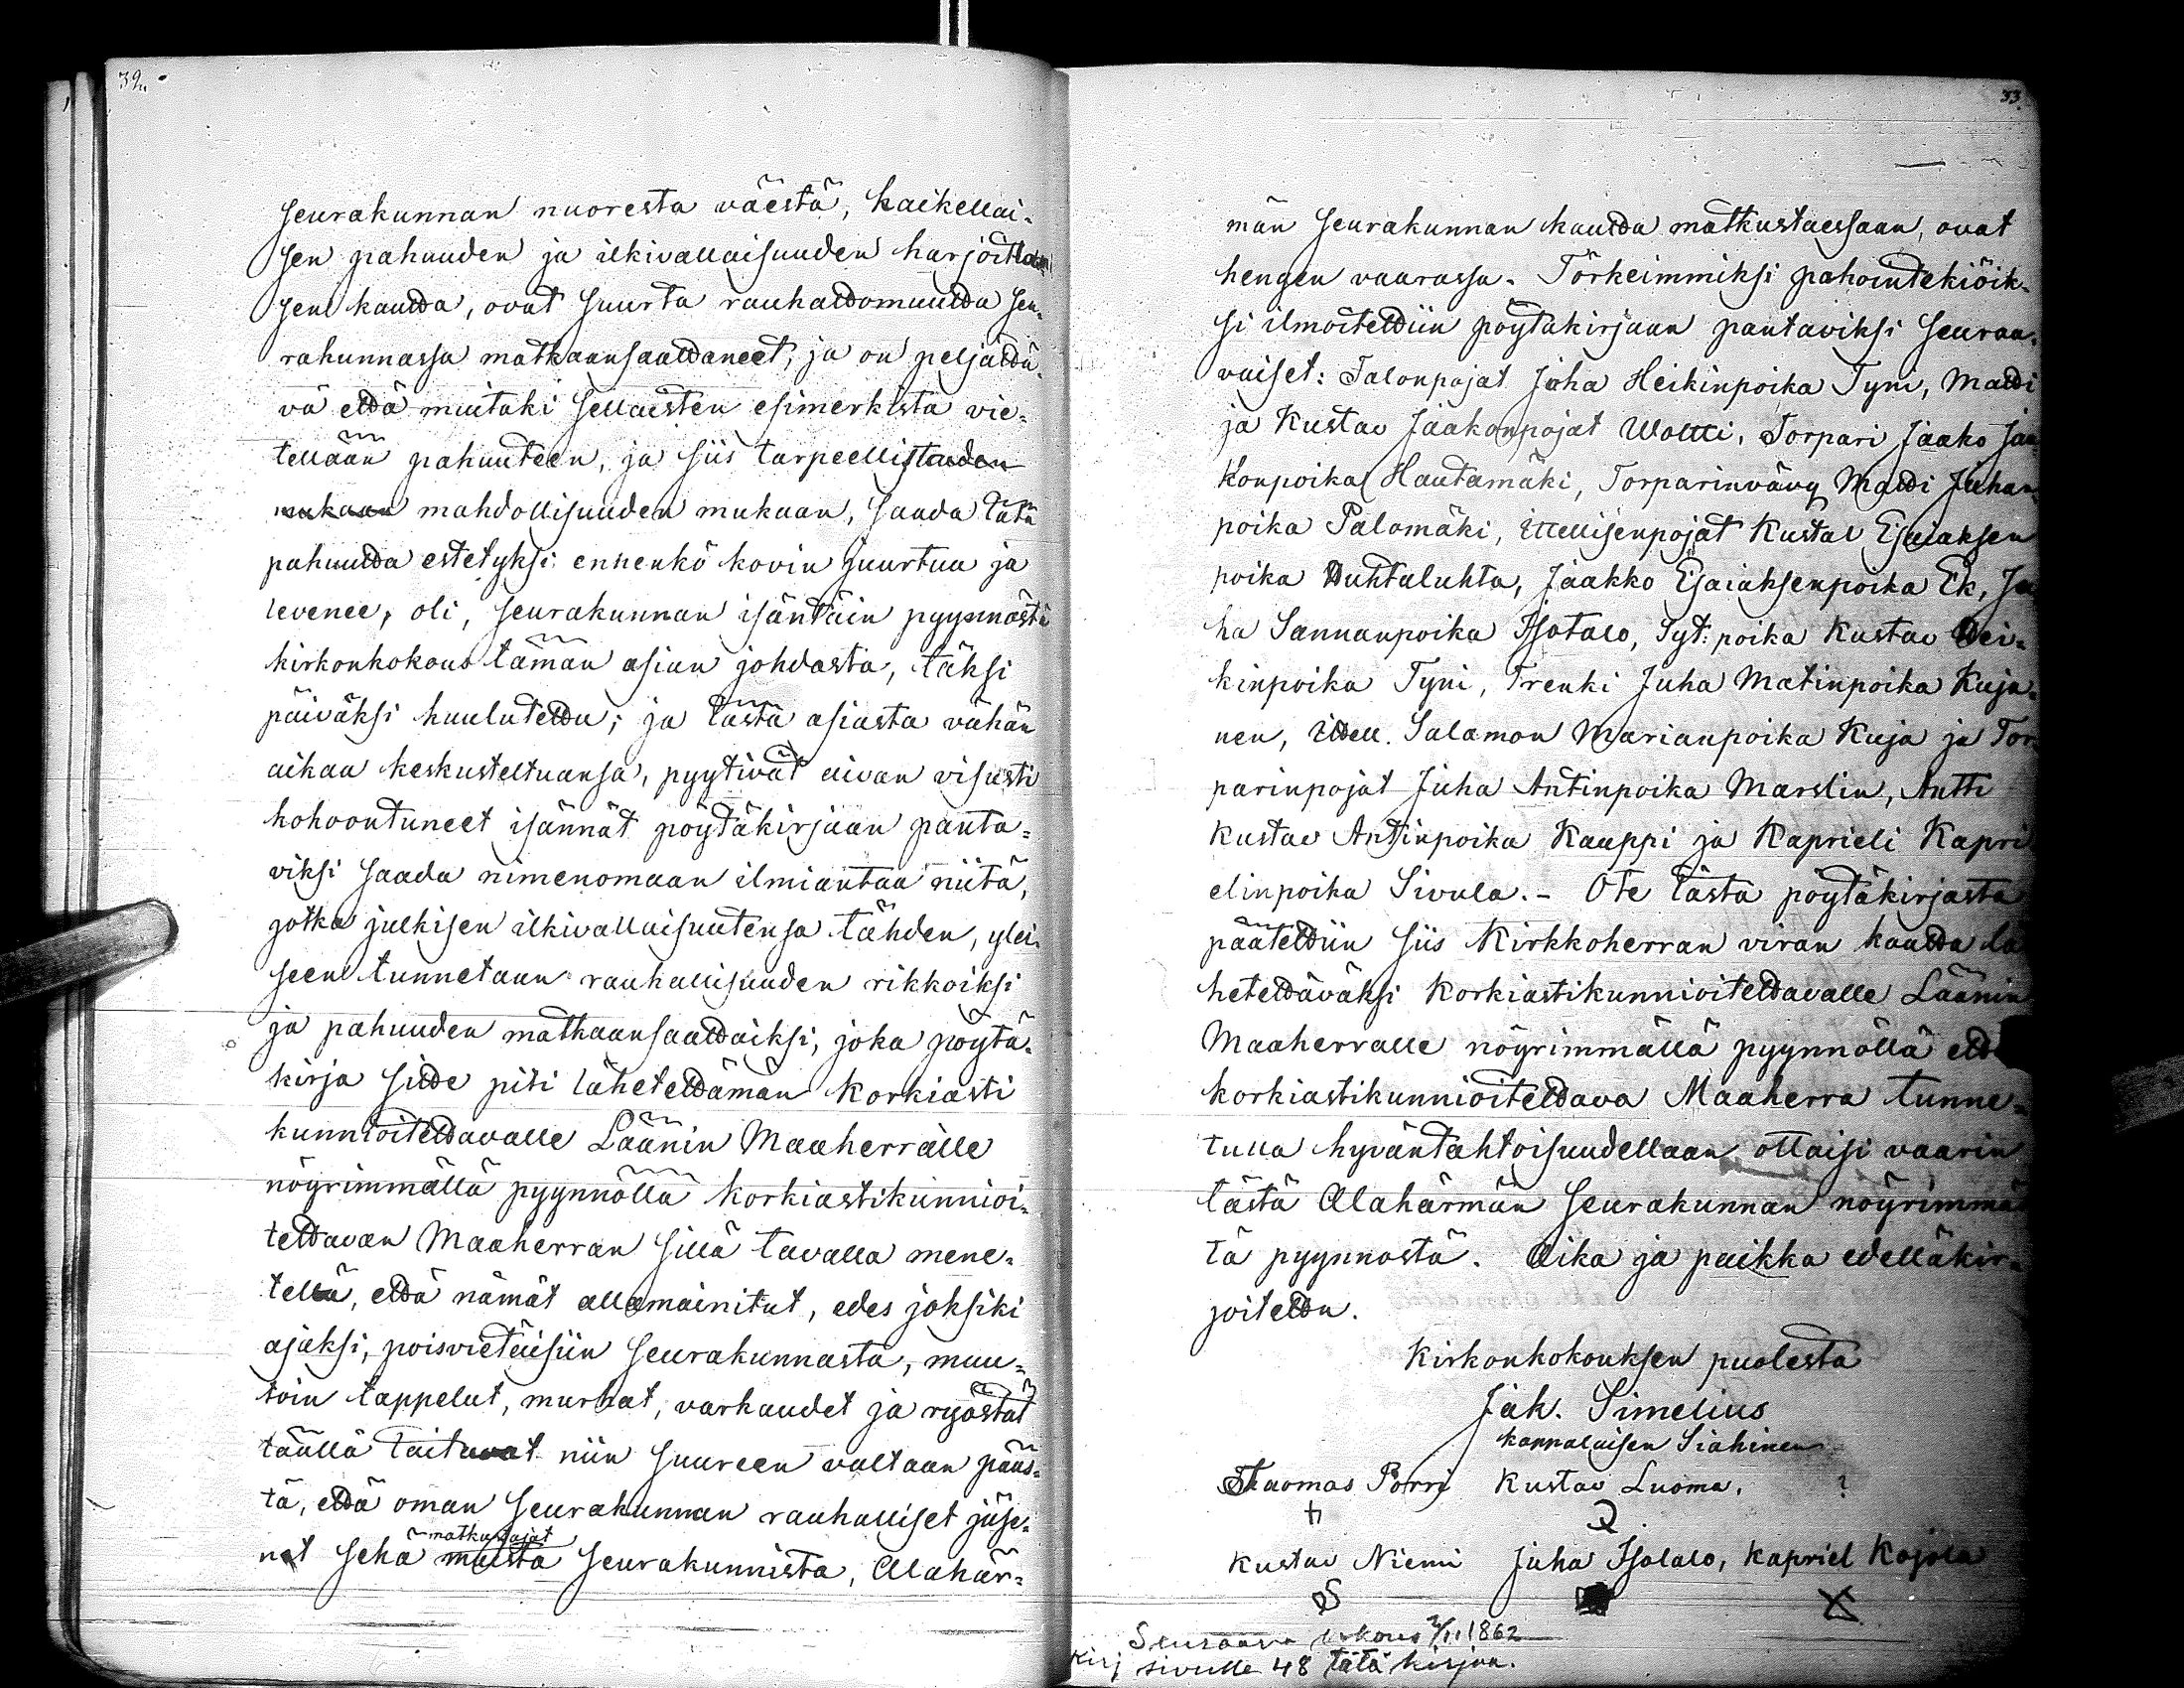 32.
seurakunnan nuoresta väestä, kaikellai-
sen pahuuden ja ilkivallaisuuden harjoitta-
sen kautta, ovat suurta rauhattomuutta seu-
rakunnassa matkaansaattaneet, ja on peljättä-
vä että muitaki sellaisten esimerkistä vie-
tellään pahuuteen, ja siis tarpeellistuuden
mukaan mahdollisuuden mukaan, saada tätä
pahuutta estetyksi ennenkö kovin juurtuu ja
levenee, oli, seurakunnan isäntäin pyynnöstä
kirkonkokous tämän asian johdosta, täksi
päiväksi kuulutettu; ja tästä asiasta vähän
aikaa keskusteltuansa, pyytivät aivan visusti
kokoontuneet isännät pöytäkirjaan panta-
viksi saada nimenomaan ilmiantaa niitä,
jotka julkisen ilkivallaisuutensa tähden, ylei-
seen tunnetaan rauhallisuuden rikkoiksi
ja pahuuden matkaansaattaiksi, joka pöytä-
kirja sitte piti lähetettämän Korkiasti
kunnioitettavalle Läänin Maaherralle
nöyrimmällä pyynnöllä Korkiastikunnioi-
tettavan Maaherran sillä tavalla mene-
tellä, että nämät allamainitut, edes joksiki
ajaksi, poisvietäisiin seurakunnasta, muu-
toin tappelut, murhat, varkaudet ja ryöstät
täällä taitavat niin suureen valtaan pääs-
tä, että oman seurakunnan rauhalliset jäse-
matkustajat
net sekä muista seurakunnista, Alahär-
33.
män seurakunnan kautta matkustaessaan, ovat
hengen vaarassa. Törkeimmiksi pahointekiöik-
si ilmoitettiin pöytäkirjaan pantaviksi seuraa-
vaiset: Talonpojat Juha Heikinpoika Tyni, Matti
ja Kustav Jaakonpojat Woltti, Torpari Jaako Jaa-
konpoika Hautamäki, Torparinvävy Matti Juhan
poika Palomäki, Itellisenpojat Kustav Esaiaksen
poika Luhtaluhta, Jaakko Esaiaksenpoika Ek, Ju
ha Sannanpoika Isotalo, Tyt: poika Kustav Hei-
kinpoika Tyni, Trenki Juha Matinpoika Kuja-
nen, Itell. Salamon Marianpoika Kuja ja Tor-
parinpojat Juha Antinpoika Marslin, Antti
Kustav Antinpoika Kauppi ja Kaprieli Kapri
elinpoika Sivula. - Ote tästä pöytäkirjasta
päätettiin siis Kirkkoherran viran kautta lä
hetettäväksi Korkiastikunnioitettavalle Läänin
Maaherralle nöyrimmällä pyynnöllä että
korkiastikunnioitettava Maaherra tunne-
tulla hyväntahtoisuudellaan ottaisi vaarin
tästä Alahärmän seurakunnan nöyrimmäs
tä pyynnöstä. Aika ja paikka edelläkir-
joitettu.
Kirkonkokouksen puolesta
Jak. Simelius
kappalaisen Siahinen
Thaomas Porri Kustav Luoma.
Kustav Niemi Juha Isotalo, Kapriel Kojola
Seuraava kokous 2/11 1862
Kirj sivulle 48 tätä kirjaa.